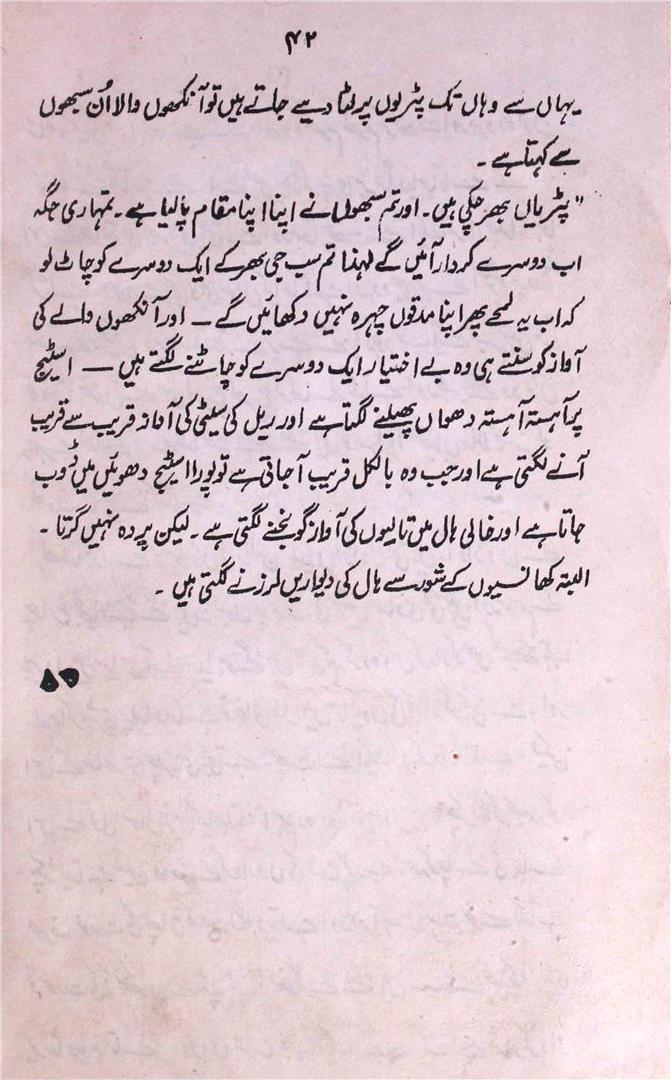 ۴۲
یہاں سے وہاں تک پٹریوں پر لٹا دیے جاتے ہیں تو آنکھوں والا اُن سبھوں
سے کہتا ہے۔
"پٹریاں بھر چکی ہیں۔ اور تم سبھوں نے اپنا اپنا مقام پا لیا ہے۔ تمہاری جگہ
اب دوسرے کردار آئیں گے لہٰذا تم سب جی بھر کے ایک دوسرے کو چاٹ لو
کہ اب یہ لمحے پھر اپنا مدقوں چہرہ نہیں دکھائیں گے — اور آنکھوں والے کی
آواز کو سنتے ہی وہ بے اختیار ایک دوسرے کو چاٹنے لگتے ہیں — اسٹیج
پر آہستہ آہستہ دھواں پھیلنے لگتا ہے اور ریل کی سیٹی کی آواز قریب سے قریب
آنے لگتی ہے اور جب وہ بالکل قریب آ جاتی ہے تو پورا اسٹیج دھوئیں میں ڈوب
جاتا ہے اور خالی ہال میں تالیوں کی آواز گونجنے لگتی ہے۔ لیکن پردہ نہیں گرتا۔
البتہ کھانسیوں کے شور سے ہال کی دیواریں لرزنے لگتی ہیں۔